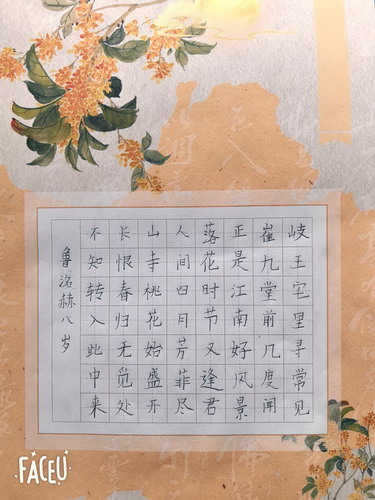 岐王宅里寻常见
崔九堂前几度闻
正是江南好风景
落花时节又逢君
人间四月芳菲尽
山寺桃花始盛开
长恨春归无觅处
不知转入此中来
鲁洺赫八岁
FACEU